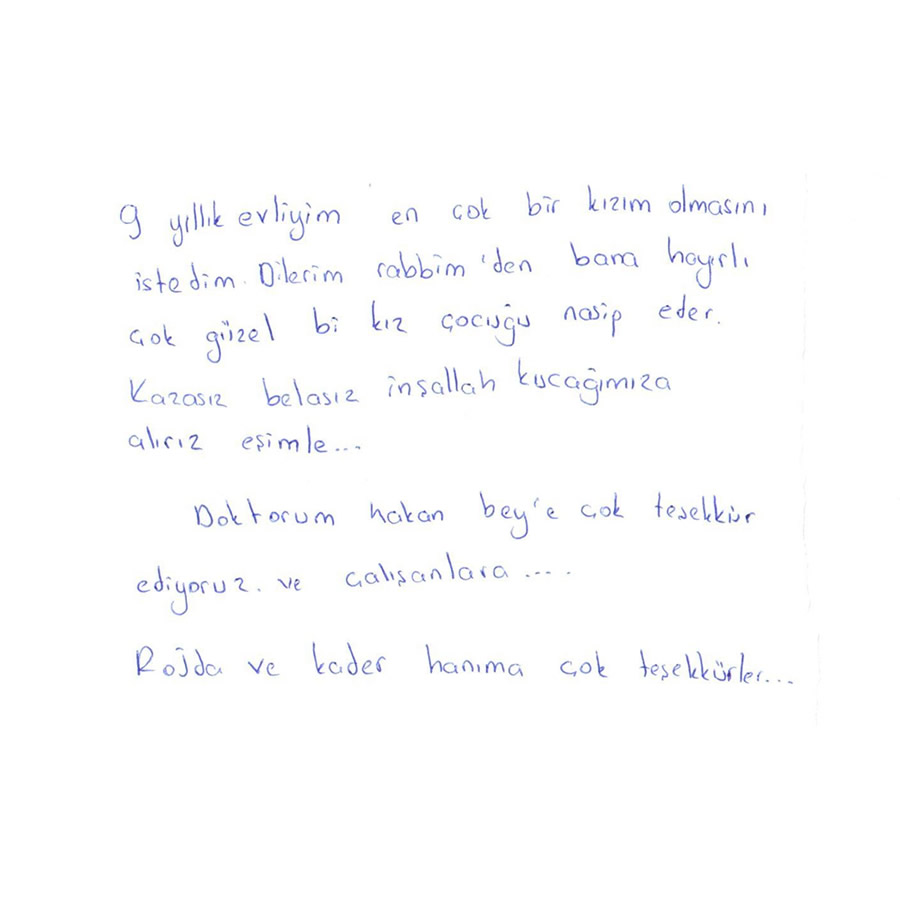 9 yıllık evliyim en çok bir kızım olmasını
istedim. Dilerim rabbim'den bana hayırlı
çok güzel bi kız çocuğu nasip eder.
Kazasız belasız inşallah kucağımıza
alırız eşimle...
Doktorum hakan bey'e çok teşekkür
ediyoruz. ve çalışanlara ....
Rojda ve kader hanıma çok teşekkürler...